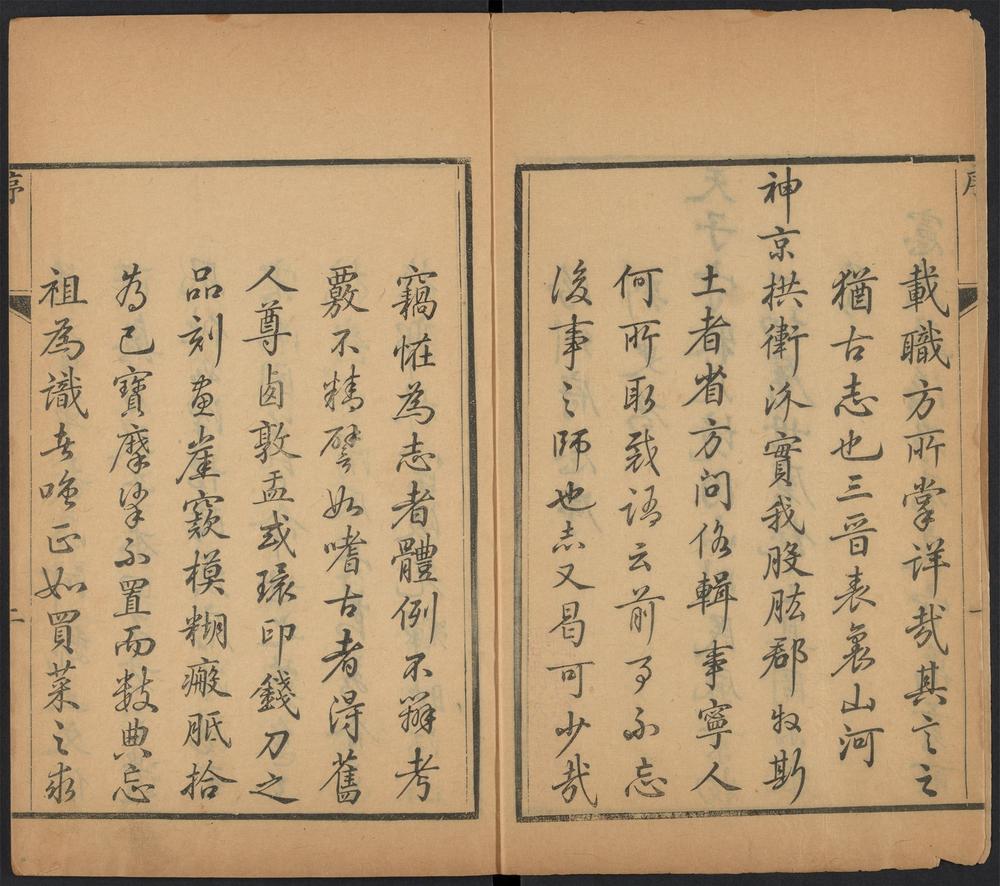 載職方所掌详哉其言之
猶古志也三晋表裏山河
神京拱衛泲實我股肱郡牧斯
土者省方问俗輯事寧人
何所取裁语云前事不忘
後事之師也志又曷可少哉
竊恠為志者體例不辨考
覈不精譬如嗜古者淂舊
人尊卤敦盂或環印錢刀之
品刻畫崖窾模糊瘢胝拾
為已寶摩挲不置而數典忘
祖為識者嗤正如買菜之求
序
二